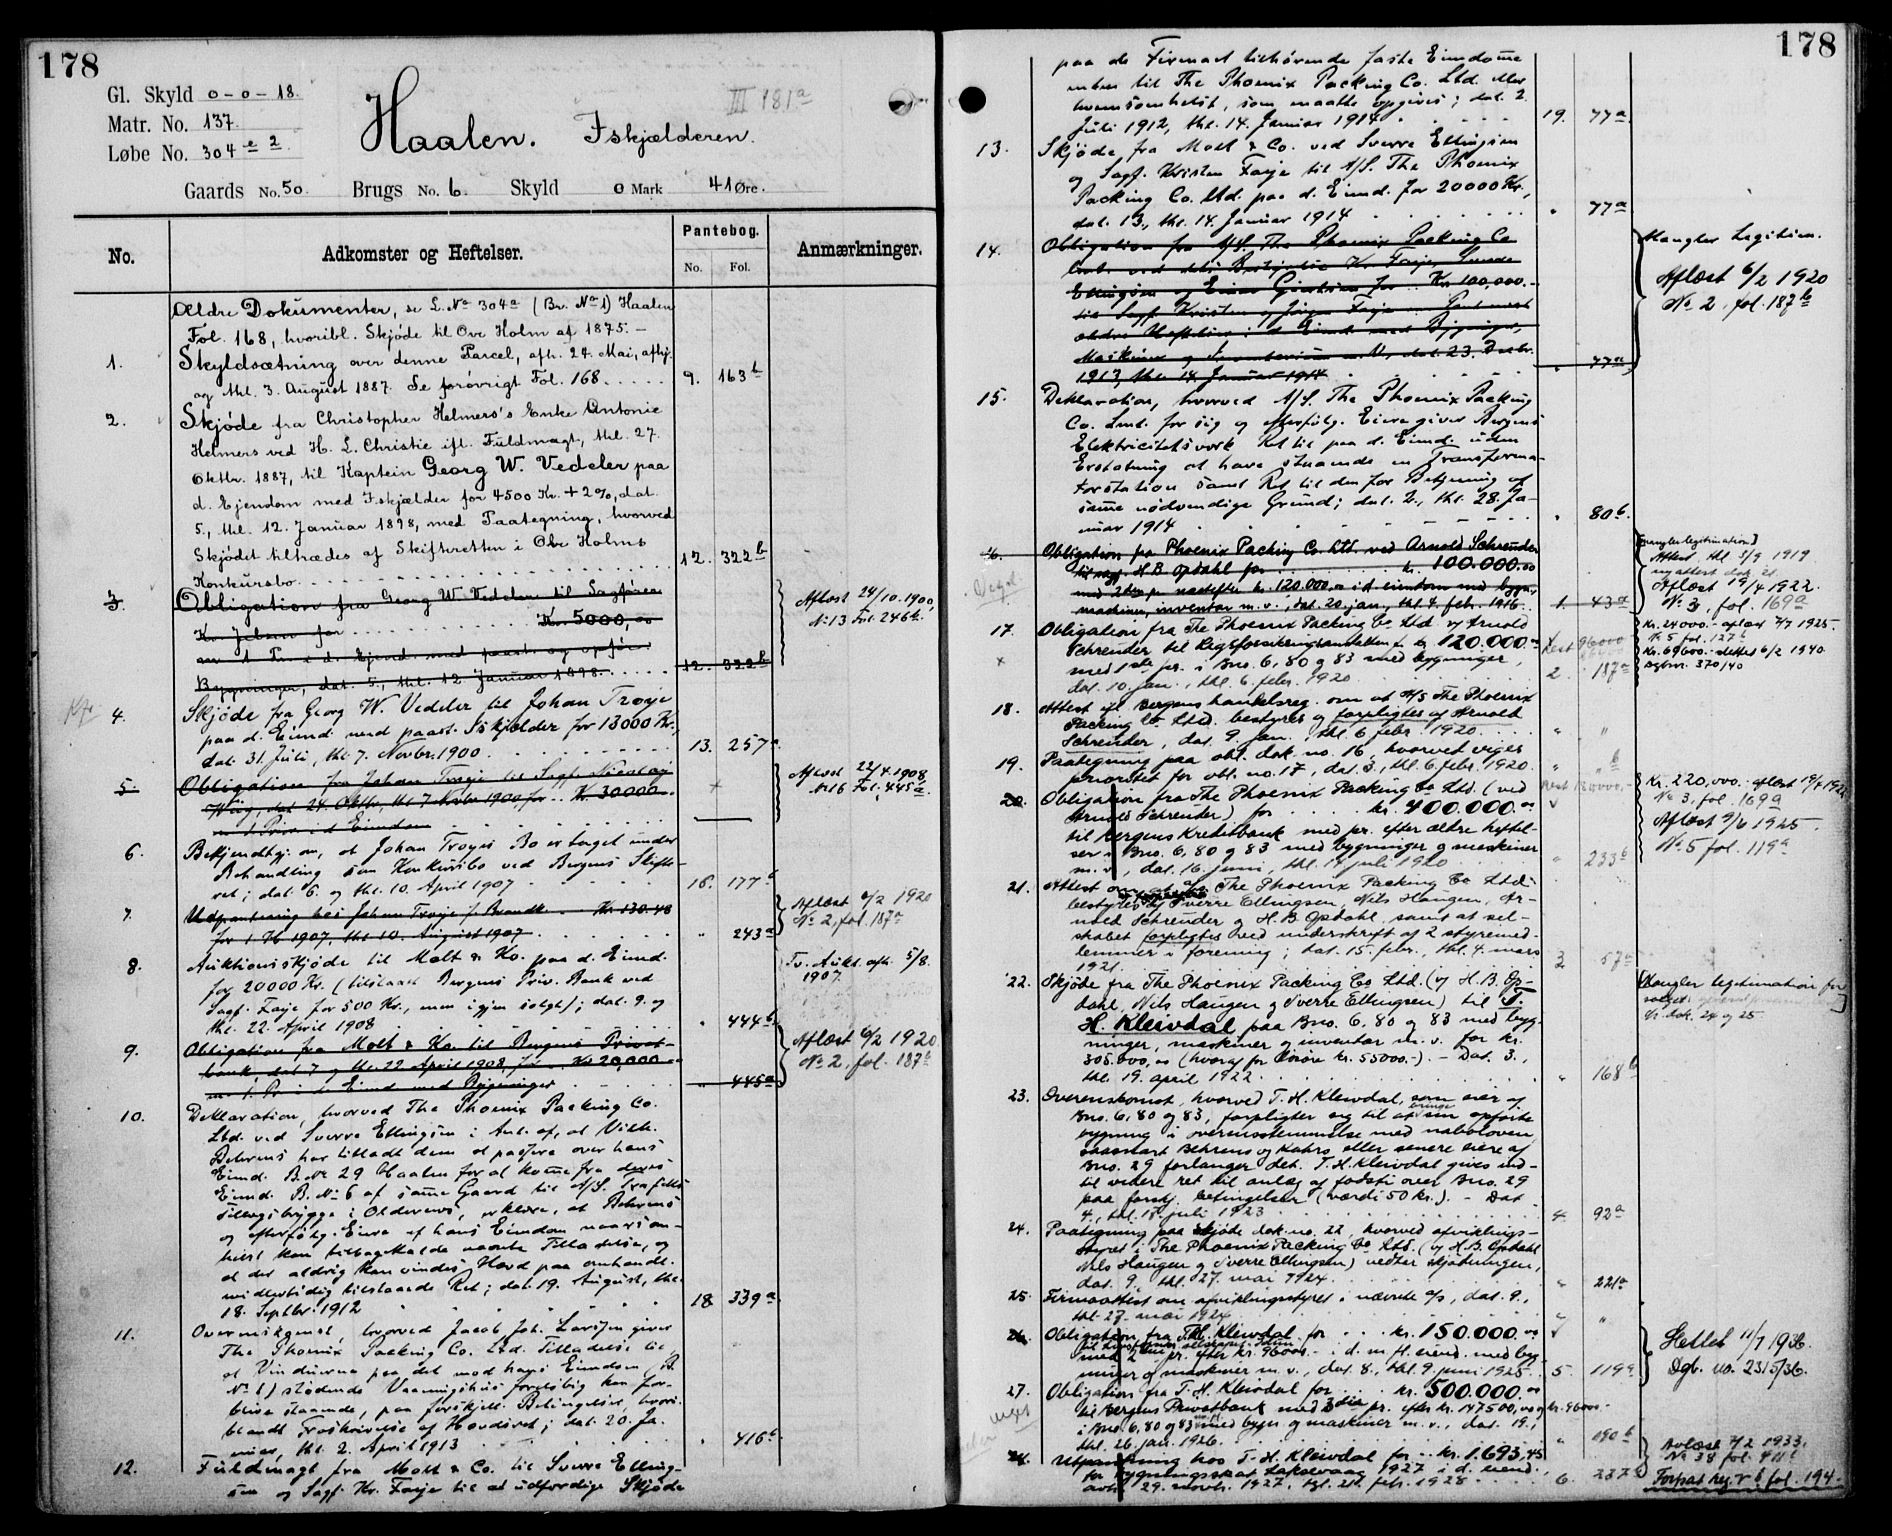 178
Gl. Skyld 0-0-18.
Matr. No. 137.
Løbe No. 304 e 2.
III 181a
Haalen. Fskjælderen.
Gaards No. 50. Brugs No. 6. Skyld 0 Mark 41 Øre.
No. Adkomster og Heftelser. Pantebog. No. Fol. Anmærkninger.
Ældre Dokumenter, se L.No 304a (Br. No 1) Haalen
Fol. 168, hvoribl. Skjøde til Ove Holm af 1875. –
1. Skyldsætning over denne Parcel, afh. 24. Mai, afhj.
og thl. 3. August 1887. Se forøvrigt Fol. 168 . . . . . 9. 163b
2. Skjøde fra Christopher Helmers's Enke Antonie
Helmers ved H. L. Christie ifl. Fuldmagt, thl. 27.
Oktbr. 1887, til Kaptein Georg W. Vedeler paa
d. Ejendom med Fskjælder for 4500 Kr. + 2%, dat.
5., thl. 12. Januar 1898, med Paategning, hvorved
Skjødet tiltrædes af Skifteretten i Ove Holms
Konkursbo. 12. 322b
3. Obligation fra Georg W. Vedeler til Sagfører
Kr. Jebsen for . . . Kr. 5000,00
m 1 Pr. i d. Ejend. med paast. og opfør.
Bygninger, dat. 5., thl. 12 Januar 1898. . . . . 12. 322b
Aflæst 24/10. 1900,
No 13 Fol. 246b.
4. Skjøde fra Georg W. Vedeler til Johan Troye
paa d. Eiend. med paast. Iskjælder for 13000 Kr.,
dat. 31. Juli, thl. 7. Novbr. 1900 13. 257a
5. Obligation fra Johan Troye til Sagf. Nicolai
Wiig, dat. 24. Oktbr., thl. 7 Novbr 1900 for . . Kr. 30000.
m 1 Prior. i d. Eiendom
Aflæst 22/4 1908
No 16 Fol. 445a.
6. Bekjendtgj. om, at Johan Troyes Bo er taget under
Behandling som Konkursbo ved Bergens Skifte-
ret; dat. 6. og thl. 10. April 1907 16. 177b
7. Udpantning hos Johan Troye f. Brandk. . . Kr. 130.48
for 1. H. 1907, thl. 10. August 1907 " 243a
Aflæst 6/2 1920
No 2, fol. 187a
8. Auktionsskjøde til Molt & Ko. paa d. Eiend.
for 20000 Kr. (tilslaaet Bergens Priv. Bank ved
Sagf. Faye for 500 Kr., men igjen solgt); dat. 9. og
thl. 22. April 1908 " 444b
Tv. Aukt. afh. 5/8
1907.
9. Obligation fra Molt & Ko. til Bergens Privat-
bank, dat. 7 og thl. 22 April 1908, for . . Kr. 20,000.00
m. 1. Pr. i d. Eiend med Bygninger " 445a
Aflæst 6/2 1920
No 2, fol. 187b
10. Deklaration, hvorved The Phoenix Packing Co.
Ltd. ved Sverre Ellingsen i Anl. af, at Vilh.
Behrens har tilladt dem at passere over hans
Eiend. B. No 29 Haalen for at komme fra deres
Eiend. B. No 6 af samme Gaard til A/S.
i Olderenes, erklære, at Behrens
og efterfølg. Eiere af hans Eiendom naarsom-
helst kan tilbagekalde nævnte Tilladelse, og
at der aldrig kan vindes Hævd paa omhandl.
midlertidig tilstaaede Ret; dat. 19. August, thl.
18. Septbr. 1912 18 339a
11. Overenskomst, hvorved Jacob Joh. Larssen giver
The Phoenix Packing Co. Ltd. Tilladelse til
at Vinduerne paa det mod hans Eiendom (B.
No 1) stødende Vaaningshus foreløbig kan for-
blive staaende, paa forskjell. Betingelser, hvori-
blandt Fraskrivelse af Hævdsret; dat. 20. Ja-
nuar, thl. 2. April 1913 " 416b
12. Fuldmagt fra Molt & Co. til Sverre Elling-
sen og Sagf. Kr. Faye til at udfærdige Skjøde
178
paa de Firmaet tilhørende faste Eiendomme
enten til The Phoenix Packing Co. Ltd. eller
hvemsomhelst, som maatte opgives; dat. 2.
Juli 1912, thl. 14. Januar 1914 19. 77a
13. Skjøde, fra Molt & Co. ved Sverre Ellingsen
og Sagf. Kristen Faye til A/S. The Phoenix
Packing Co. Ltd. paa d. Eiend. for 20000 Kr.,
dat. 13., thl. 14. Januar 1914 " 77a
14. Obligation fra A/S. The Phoenix Packing Co
Ellingsen og Einar for . . Kr. 100,000.-
til Sagf. Kristen og Jørgen Faye
ældre Heftelser i d. Eiend. med Bygninger,
Maskiner og m. v., dat. 23. Decbr.
1913, thl. 14. Januar 1914 " 77a
Mangler Legitim.
Aflæst 6/2 1920
No. 2, fol. 187b
15. Deklaration, hvorved A/S. The Phoenix Packing
Co. Lmd. for sig og efterfølg. Eiere giver Bergens
Elektricitetsverk Ret til paa d. Eiend. uden
Erstatning at have staaende en Transforma-
torstation samt Ret til den for Betjening af
samme nødvendige Grund; dat. 2., thl. 28. Ja-
nuar 1914 " 80b.
16. Obligation fra Phoenix Packing Co. Ltd. ved Arnold Schreuder
til sagf. H. B. Opdahl for kr. 100.000.00
med 2den pr. næstefter kr. 120.000.00 i d. eiendom med bygn.,
maskiner, inventar m. v., dat. 20. jan., thl. 4. feb. 1916. 1. 43a
[mangler legitimation]
Attest thl. 5/9 1919
Aflæst 19/4 1922.
No 3, fol. 169a
17. Obligation fra The Phoenix Packing Co Ltd v/ Arnold
Schreuder til Rigsforsikringsanstalten f. kr 120.000.00
med 1ste pr. i Bno. 6, 80 og 83 med bygninger,
dat. 10. jan., thl. 6. febr. 1920 2. 187a
Rest 96000
Kr. 24000.- aflæst 7/7 1925.
No 5 fol. 127b
Kr. 69600.- slettet 6/2 1940
Dagbnr. 370/40
18. Attest ifl. Bergens handelsreg. om at A/S The Phoenix
Packing Co. Ltd. bestyres og forpligtes af Arnold
Schreuder, dat. 9. jan., thl. 6 febr. 1920 " "
19. Paategning paa obl. dok. no. 16, hvorved viges
prioritet for obl. no. 17, dat. 3., thl. 6. febr. 1920. " " b
20. Obligation fra The Phoenix Packing Co Ltd. (ved
Arnold Schreuder) for kr. 400.000.00
til Bergens Kreditbank med pr. efter ældre heftel-
ser i Bno. 6, 80 og 83 med bygninger og maskiner
m. v., dat. 16. juni, thl. 17. juli 1920 " 233b
Rest 180000.-
Kr. 220,000.- aflæst 19/4 1922
No. 3. fol. 169a
Aflæst 9/6 1925.
No. 5 fol. 119a
21. Attest om, at A/S The Phoenix Packing Co Ltd.
bestyres af Sverre Ellingsen, Nils Haugen, Ar-
nold Schreuder og H. B. Opdahl, samt at sel-
skabet forpligtes ved underskrift af 2 styremed-
lemmer i forening; dat. 15. febr., thl. 4. mars
1921 3 57a
22. Skjøde fra The Phoenix Packing Co Ltd. (v/ H. B. Op-
dahl, Nils Haugen og Sverre Ellingsen) til T.
H. Kleivdal paa Bno. 6, 80 og 83 med byg-
ninger, maskiner og inventar m. v. for kr.
305.000,00 (hvoraf for løsøre kr. 55000.-). - Dat. 3.,
thl. 19. april 1922 " 168b
[Mangler legitimation for
Se dok. 24 og 25
23. Overenskomst, hvorved T. H. Kleivdal, som eier af
Bno. 6, 80 og 83, forpligter sig til at bringe sin opførte
bygning i overensstemmelse med naboloven,
saasnart Behrens og Kahrs eller senere eiere af
Bno. 29 forlanger det. T. H. Kleivdal gives ind-
til videre ret til anlæg af fodsti over Bno. 29
paa forskj. betingelser (værdi 50 kr.). – Dat.
4., thl. 18. juli 1923 4. 92a
24. Paategning paa skjøde dok. no. 22, hvorved afviklings-
styret i The Phoenix Packing Co Ltd. (v/ H. B. Opdahl
Nils Haugen og Sverre Ellingsen) vedtar skjøtningen,
dat. 9., thl. 27. mai 1924 " 221a
25. Firmaattest om afviklingsstyret i nævnte a/s, dat. 9.,
thl. 27. mai 1924 " "
26. Obligation fra T. H. Kleivdal for kr. 150.000.00
med 2den pr. efter kr. 96000.- i d. m. fl. eiend. med byg-
ninger og maskiner m. v., dat. 8., thl. 9. juni 1925 5. 119a
Slettet 11/7 1936.
Dgb. no. 2315/36.
27. Obligation fra T. H. Kleivdal for kr. 500.000.00
til Bergens Privatbank med 3die pr. efter kr. 147500,00 og kr. 96000.-
i Bno. 6, 80 og 83 med bygn. og maskiner m. v., dat. 19.,
thl. 26. jan. 1926 " 190b
28. Utpantning hos T. H. Kleivdal for kr. 1.693,45
for bygningsskat Laksevaag 1927 i d. eiend.
avh. 29. novbr. 1927, tgl. 21. febr. 1928 6. 237
Avlæst 7/2 1933.
No 38 fol. 411b
Forpat. reg. V b fol. 194.